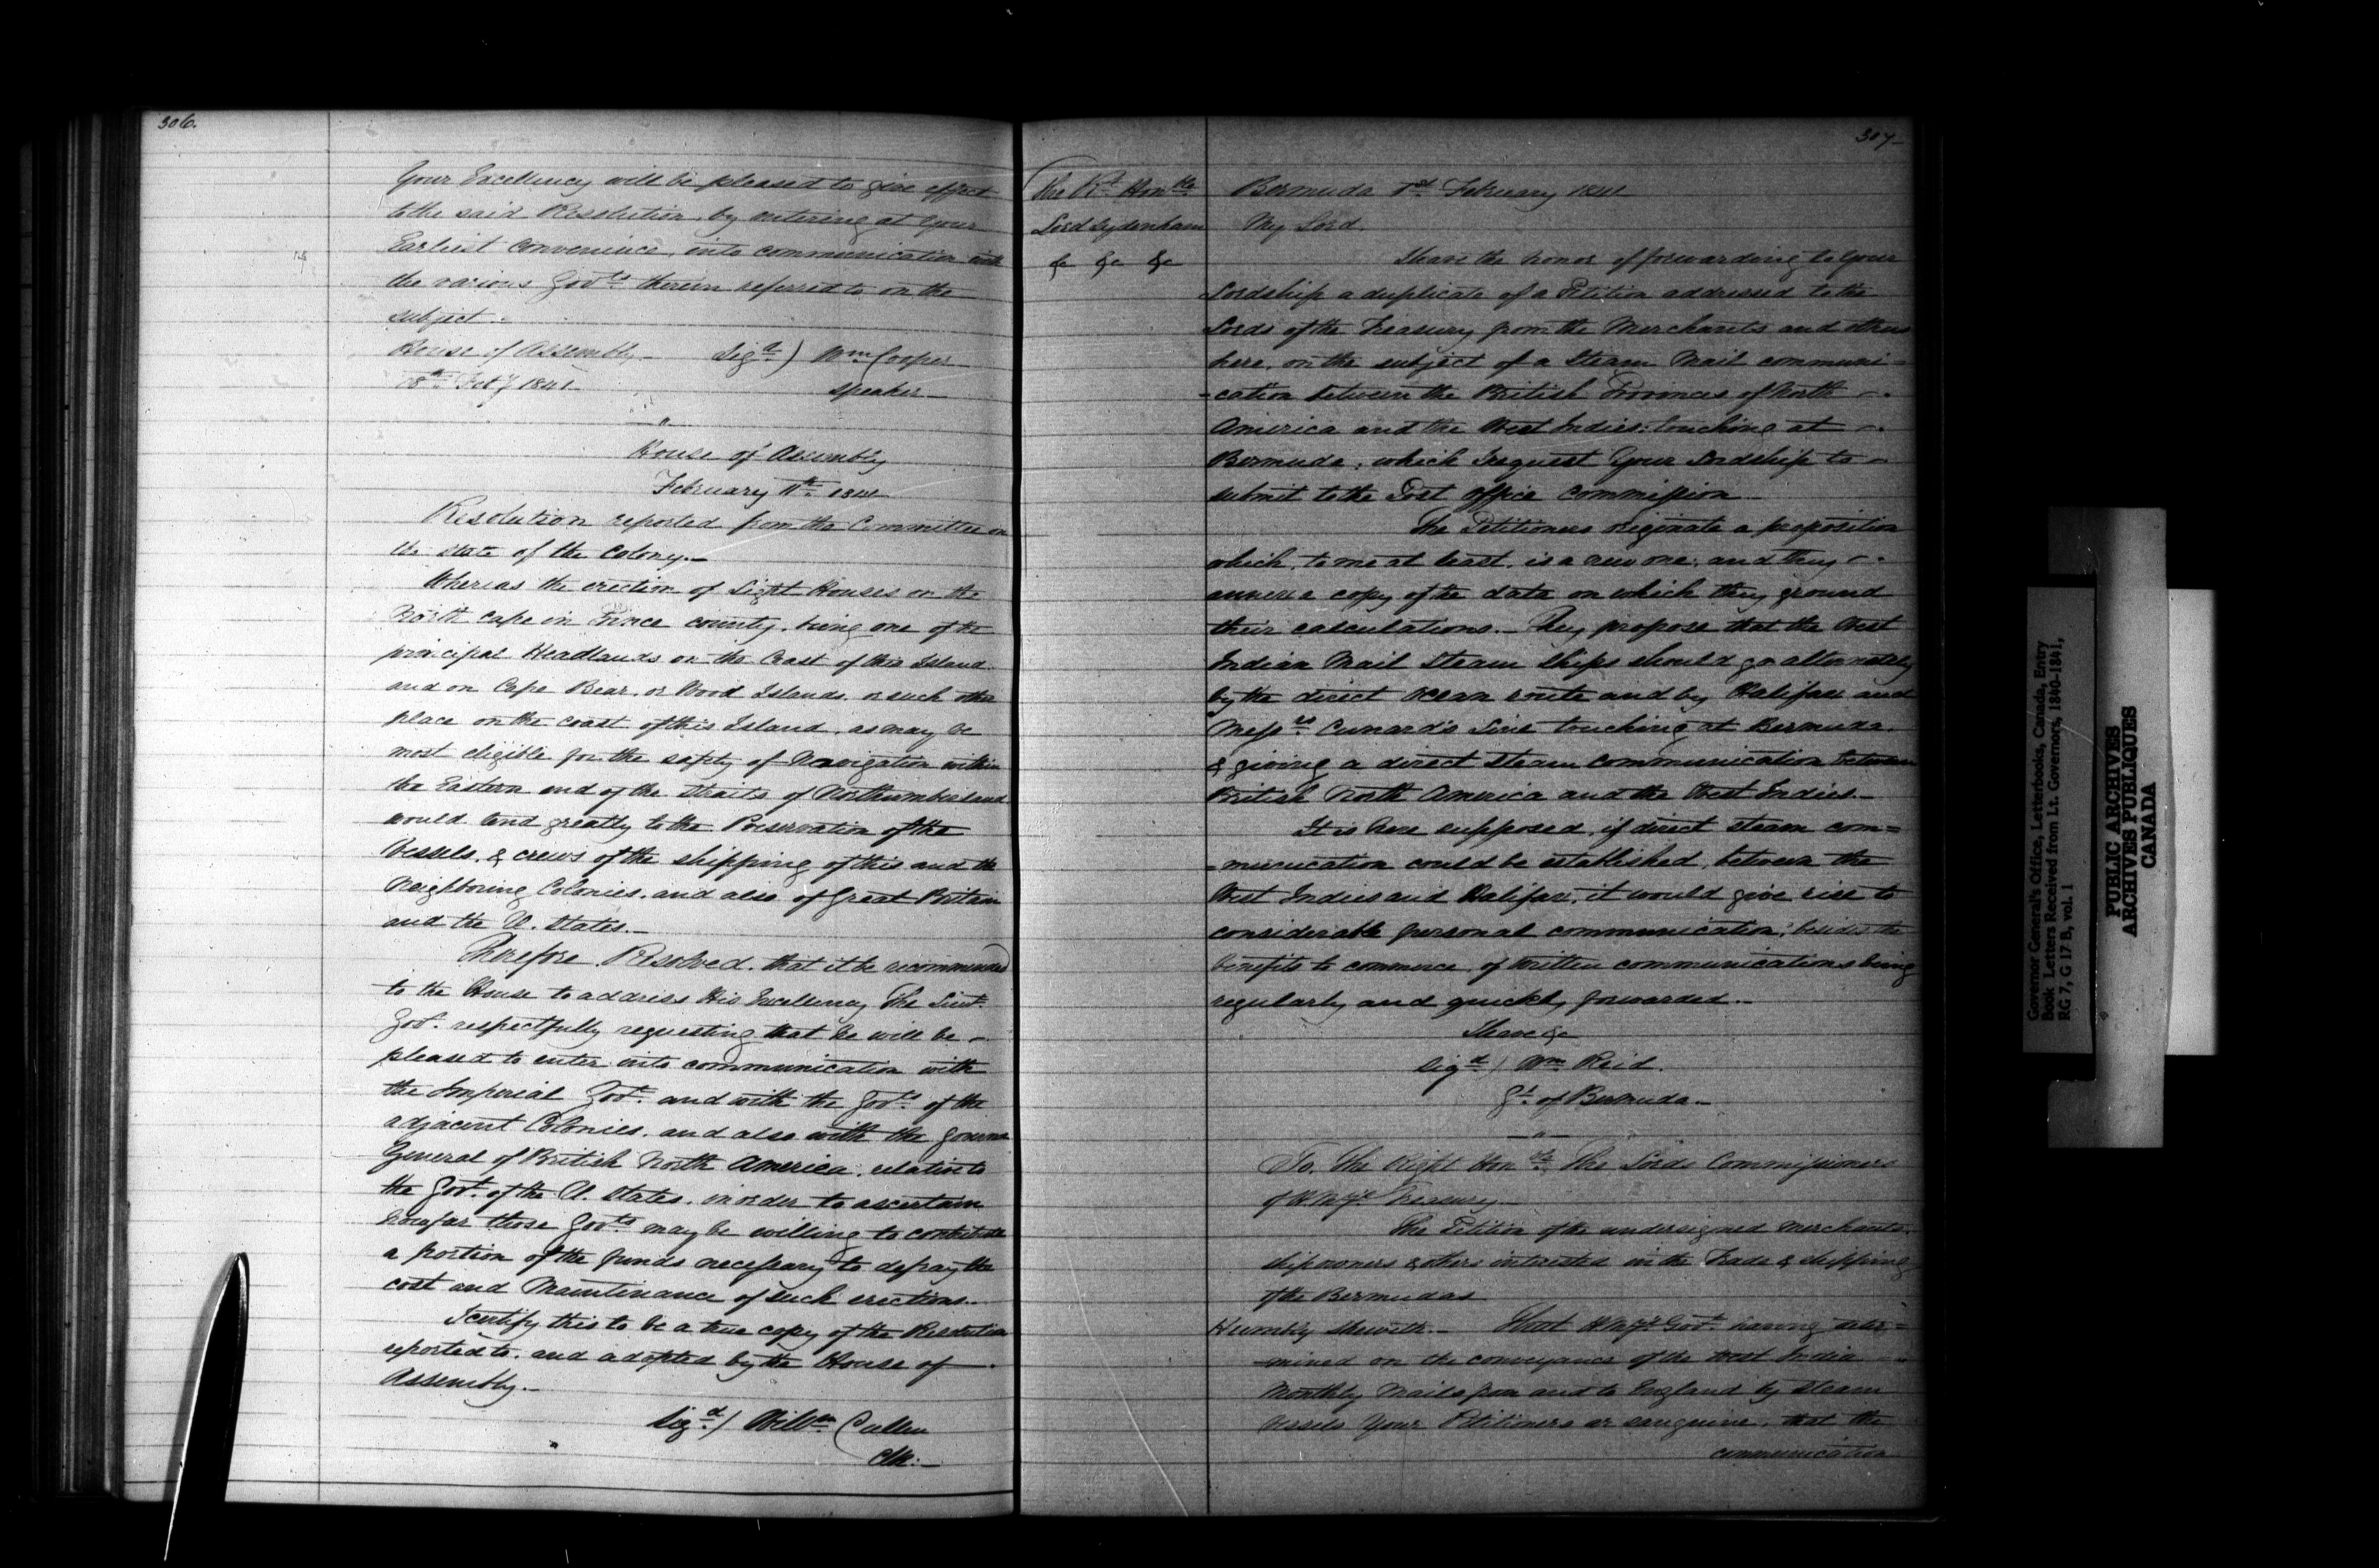 306.
Your Excellency will be pleased to give effect
to the said Resolution, by entering at Your
Earliest convenience, into communication with
the various Govts. therein referred to on the
subject.
House of Assembly Sigd.) Wm Cooper
Feby 1841 Speaker
House of Assembly
February 11th 1841
Resolution reported from the Committee on
the State of the Colony.
Whereas the erection of Light Houses on the
North Cape in Prince county, being one of the
principal Headlands on the Coast of this Island
and on Cape Bear, or Wood Islands, or such other
place on the coast of this Island, as may be
most eligible for the safety of Navigation within
the Eastern end of the Straits of Northumberland
would tend greatly to the Preservation of the
Vessels, & crews of the shipping of this and the
Neighboring Colonies, and also of Great Britain
and the U. States.
Therefore Resolved, that it be recommended
to the House to address His Excellency The Lieut.
Govr. respectfully requesting that he will be
pleased to enter into communication with
the Imperial Govt. and with the Govts. of the
adjacent Colonies, and also with the Governor
General of British North America, relative to
the Govt. of the U. States, in order to ascertain
how far those Govts. may be willing to contribute
a portion of the funds necessary to defray the
cost and Maintenance of such erections.
I certify this to be a true copy of the Resolution
reported to, and adopted by the House of
Assembly.
Sigd.) Willm Cullen
Clk.
307
The Rt. Honble.
Lord Sydenham
&c &c &c
Bermuda 1st February 1841
My Lord,
I have the honor of forwarding to Your
Lordship a duplicate of a Petition addressed to the
Lords of the Treasury from the Merchants and others
here, on the subject of a Steam Mail communi=
=cation between the British Provinces of North
America and the West Indies, touching at
Bermuda, which I request Your Lordship to
submit to the Post Office Commission
The Petitioners originate a proposition
which, to me at least, is a new one, and they
annex a copy of the data on which they ground
their calculations. They propose that the West
Indian Mail Steam Ships should go alternately
by the direct ocean route and by Halifax and
Messrs. Cunard's Line touching at Bermuda,
& giving a direct steam communication between
British North America and the West Indies.
It is here supposed, if direct steam com=
=munication could be established, between the
West Indies and Halifax, it would give rise to
considerable personal communication, besides the
benefits to commerce, of written communications being
regularly and quickly forwarded.
I have &c
Sigd.) Wm. Reid.
Gr. of Bermuda
To, The Right Honble. The Lords Commissioners
of H Mys. Treasury
The Petition of the undersigned Merchants,
shipowners & others interested in the Trade & shipping
of the Bermudas
Humbly Sheweth. That H Mys. Govt. having deter=
=mined on the conveyance of the West India
Monthly Mails from and to England by steam
vessels Your Petitioners are sanguine, that the
communication
Governor General's Office, Letterbooks, Canada, Entry
Book Letters Received from Lt. Governors, 1840-1841,
RG 7, G 17 B, vol. 1
PUBLIC ARCHIVES
ARCHIVES PUBLIQUES
CANADA